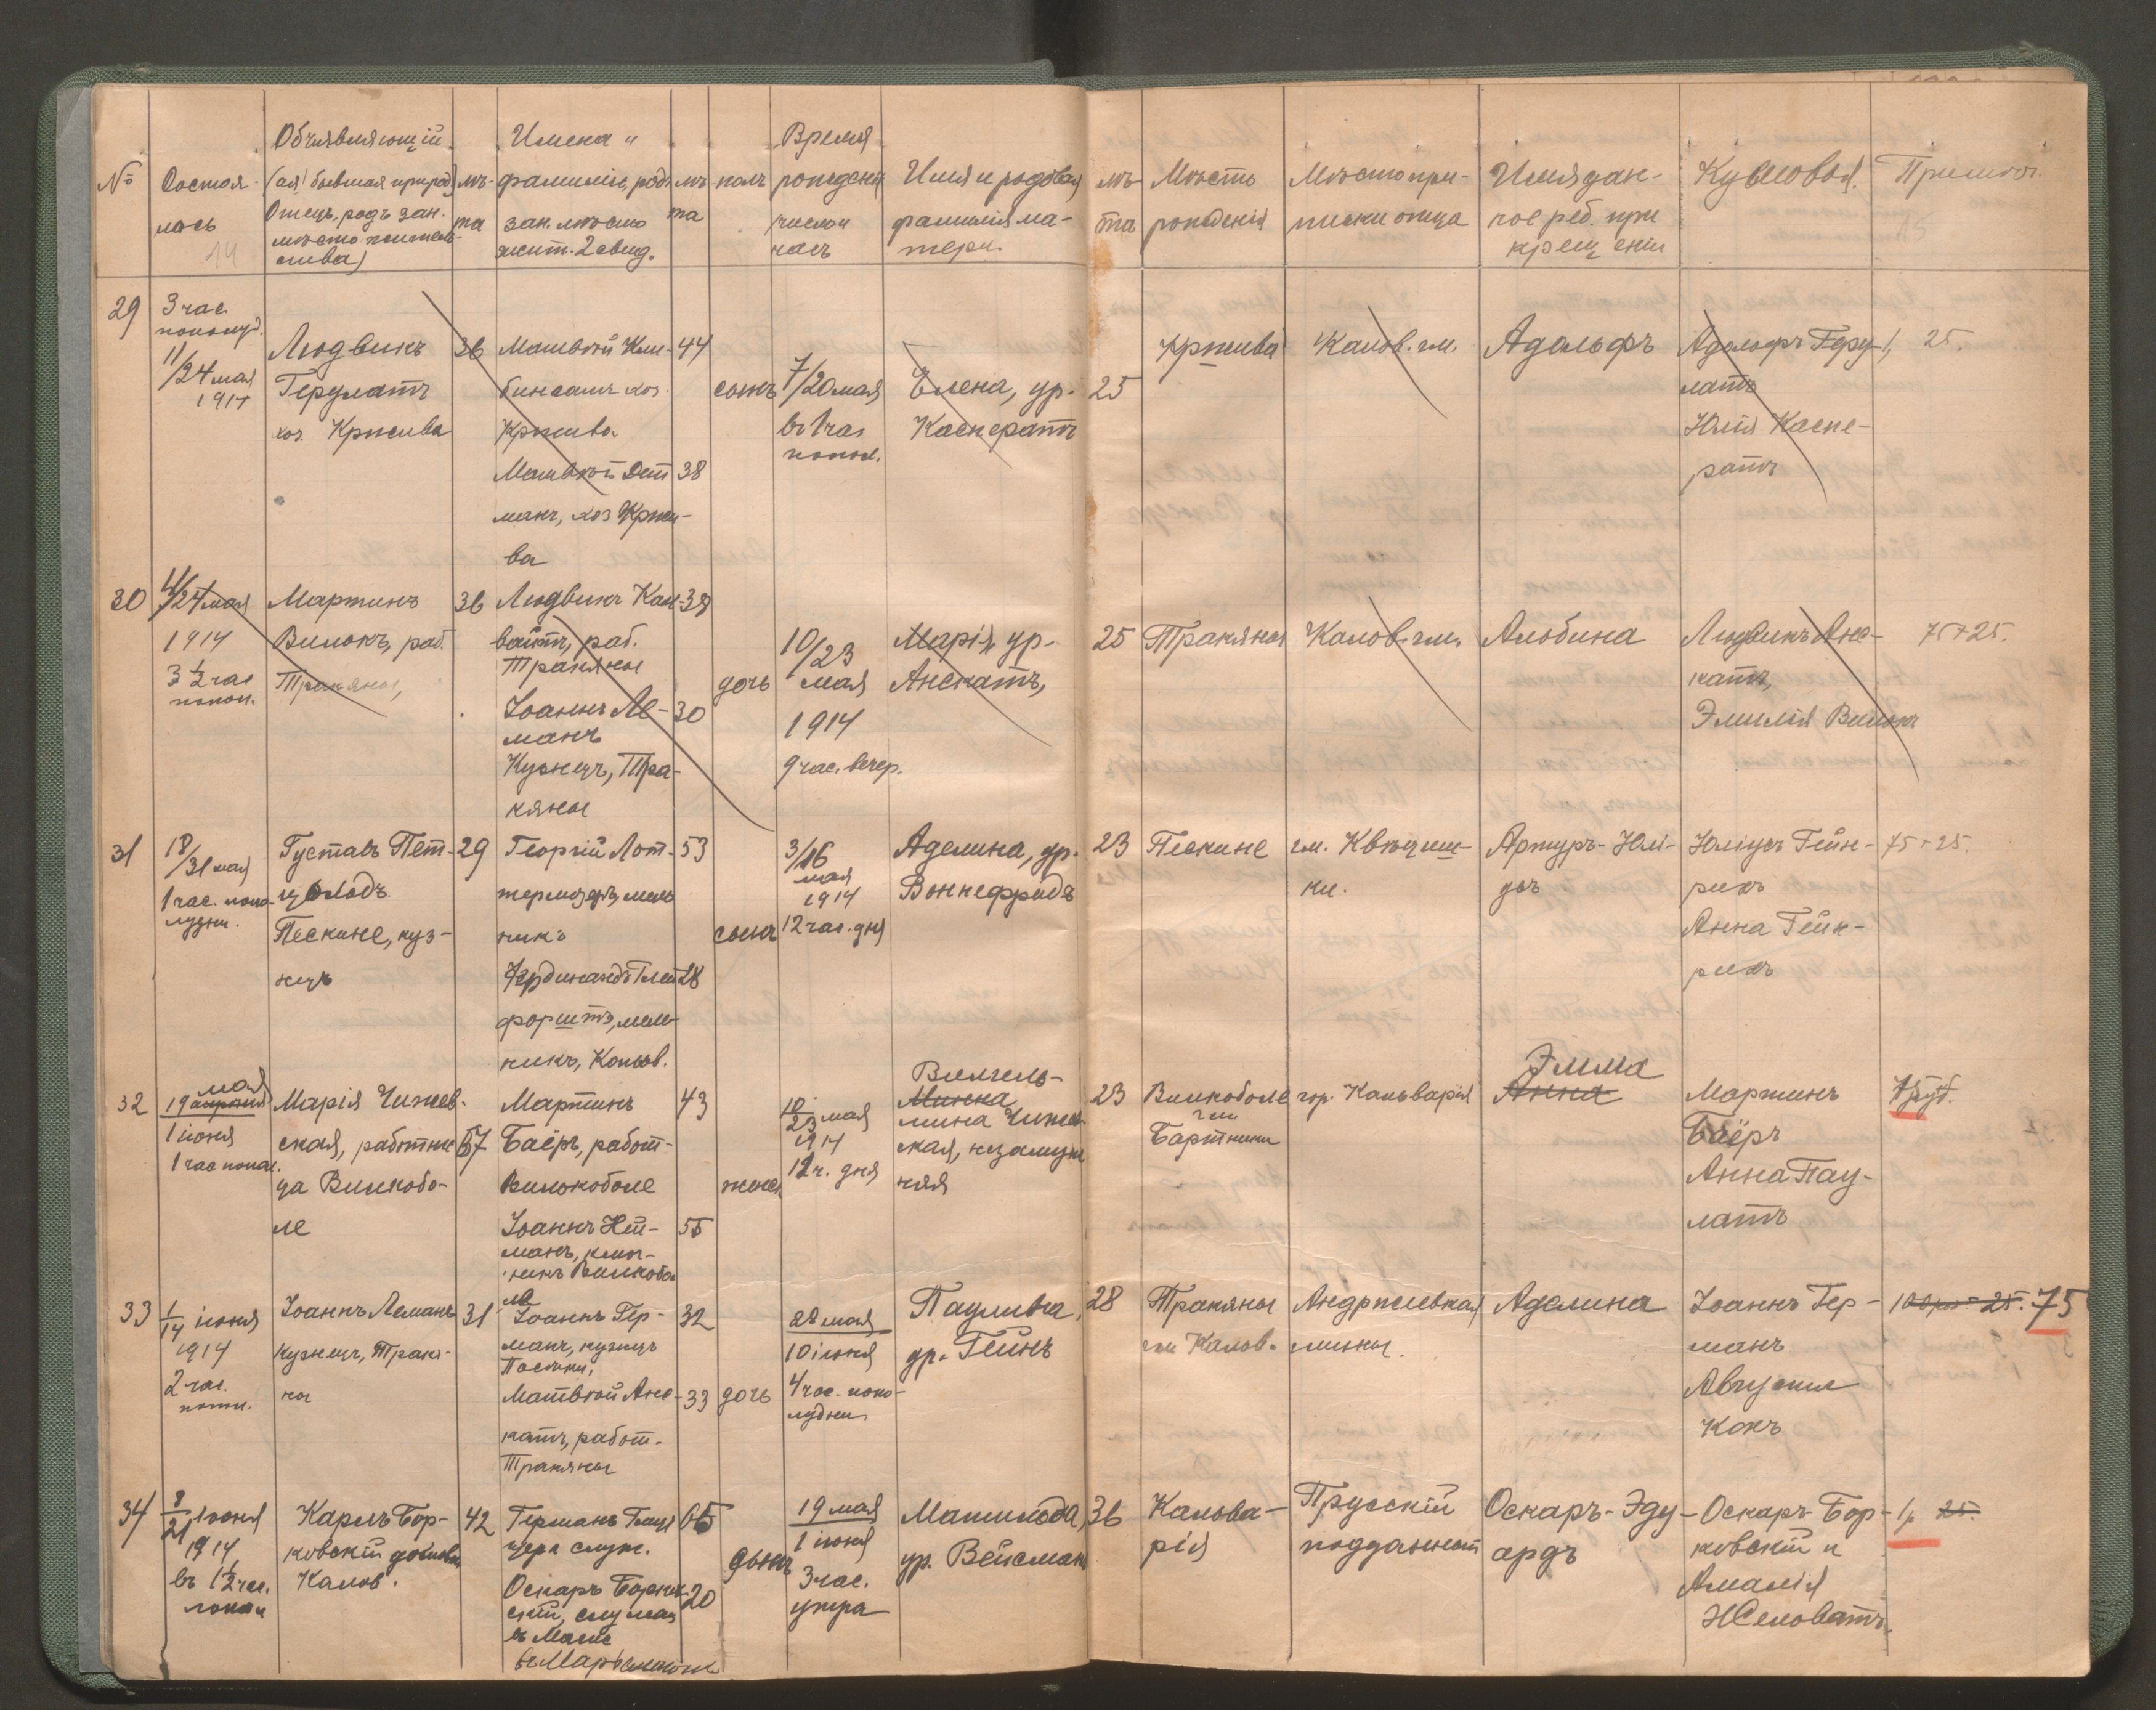 Время
Объявляющій
Имена и
№
Состоя-
(ая) бывшая при род.
лѣ-
фамилія, родъ
лѣ-
полъ
рожденія
Имя и родовая
лѣ-
Мѣсто
Мѣсто при-
Имя дан-
Кумовья.
Примѣч.
лось
Отецъ, родъ зан.
та
зан. мѣсто
та
число и
фамилія ма-
та
рожденія
писки отца
ное реб. при
14
мѣсто житель-
ства)
жит. 2 свид.
часъ
тери.
крещеніи
15
29
3 час.
пополуд.
11/24 мая
1914
Людвикъ
Герулатъ
хоз. Кржива
36
Матвѣй Кли-
бинсатъ хоз.
Кржива
Матвѣй Дет
манъ, хоз Кржи-
ва
44
38
сынъ
7/20 мая
въ 1 час
попол.
Елена, ур.
Касператъ
25
Кржива
Кальв. гм.
Адольфъ
Адольфъ Геру-
латъ
Юлія Каспе-
ратъ
1,
25.
30
11/24 мая
1914
3 1/2 час
попол.
Мартинъ
Вилокъ, раб.
Тракяны,
36
Людвикъ Кал-
вайтъ, раб.
Тракяны
Іоаннъ Ле-
манъ
Кузнецъ, Тра-
кяны
38
30
дочь
10/23
мая
1914
9 час. вечер.
Марія, ур.
Анскатъ,
25
Тракяны
Кальв. гм.
Альбина
Людвикъ Анс-
катъ,
Эмилія Вилокъ
75+25.
31
18/31 мая
1 час. попо-
лудни.
Густавъ Пет-
цольдъ
Пескине, куз-
нецъ
29
Георгій Лот-
термозеръ, мель
никъ
Фердинандъ
форштъ, мель-
никъ, Кальв.
53
28
сынъ
3/16
мая
1914
12 час. дня
Аделина, ур.
Воннефридъ
23
Пескине
гм. Квѣциш-
ки.
Артуръ-Юлі-
усъ
Юліусъ Гейн-
рихъ
Анна Гейн-
рихъ
75+25.
32
мая
19 апрѣля
1 іюня
1 час попол.
Марія Чижев-
ская, работни
ца Вилкобо-
ле
67
Мартинъ
Баёръ, работ-
Вилкоболе
Іоаннъ Ней-
манъ,
Вилкобо
ле
43
55
женск
10/23 мая
1914
12 ч. дня
Вилгель-
Минна
мина Чижев
ская, незамуж
няя
23
Вилкоболе
гм
Бартники
гор. Кальварія
Эмма
Анна
Мартинъ
Баёръ
Анна Пау-
латъ
1 руб.
33
1/14 іюня
1914
2 час.
попол.
Іоаннъ Леманъ
кузнецъ, Тракя-
ны
31
Іоаннъ Гер-
манъ, кузнецъ
Матвѣй Анс-
катъ, работ-
Тракяны
32
33
дочь
28 мая
10 іюня
4 час. попо-
лудни
Паулина,
ур. Гейнъ
28
Тракяны
гм Кальв.
Андржеевская
гмины.
Аделина
Іоаннъ Гер-
манъ
Августа
Конъ
25. 75
34
8/21 іюня
1914
въ 1 1/2 час.
попол
Карлъ Бор-
ковскій
Кальв.
42
Германъ
служ.
Оскаръ Борков
скій,
въ Маріамполѣ
65
20
сынъ
19 мая
1 іюня
3 час.
утра
Матильда,
ур. Вейсманъ
36
Кальва-
рія
Прусскій
подданный
Оскаръ-Эду-
ардъ
Оскаръ Бор-
ковскій и
Амалія
Желоватъ.
1 р
25.